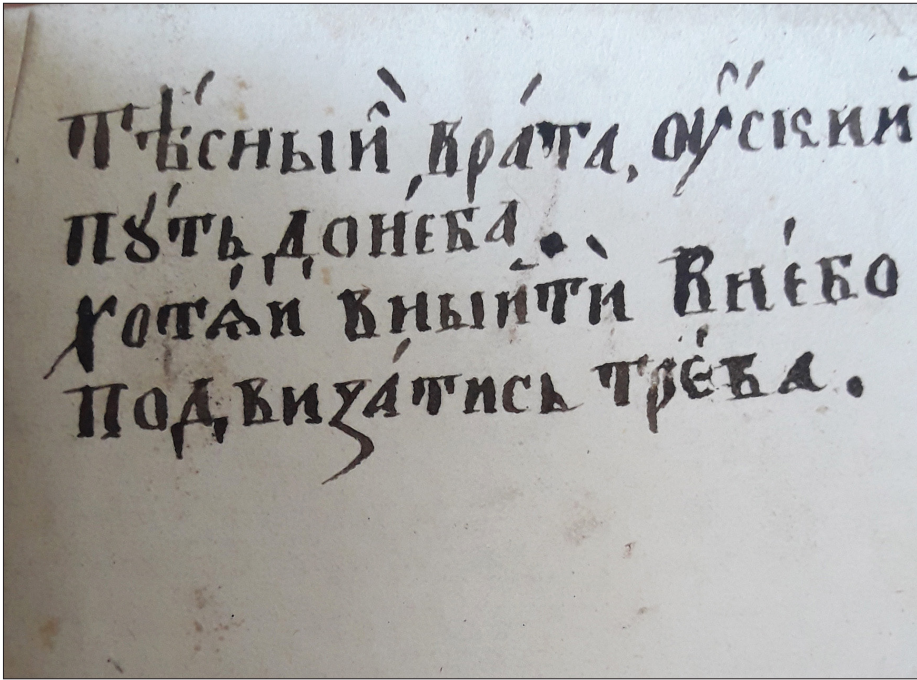 тѣ́сный̀ врáта, ѹ҆́ский
пꙋ́ть донéба.
хотѧ́й вныйтѝ внéбо
подвизáтись трéба.